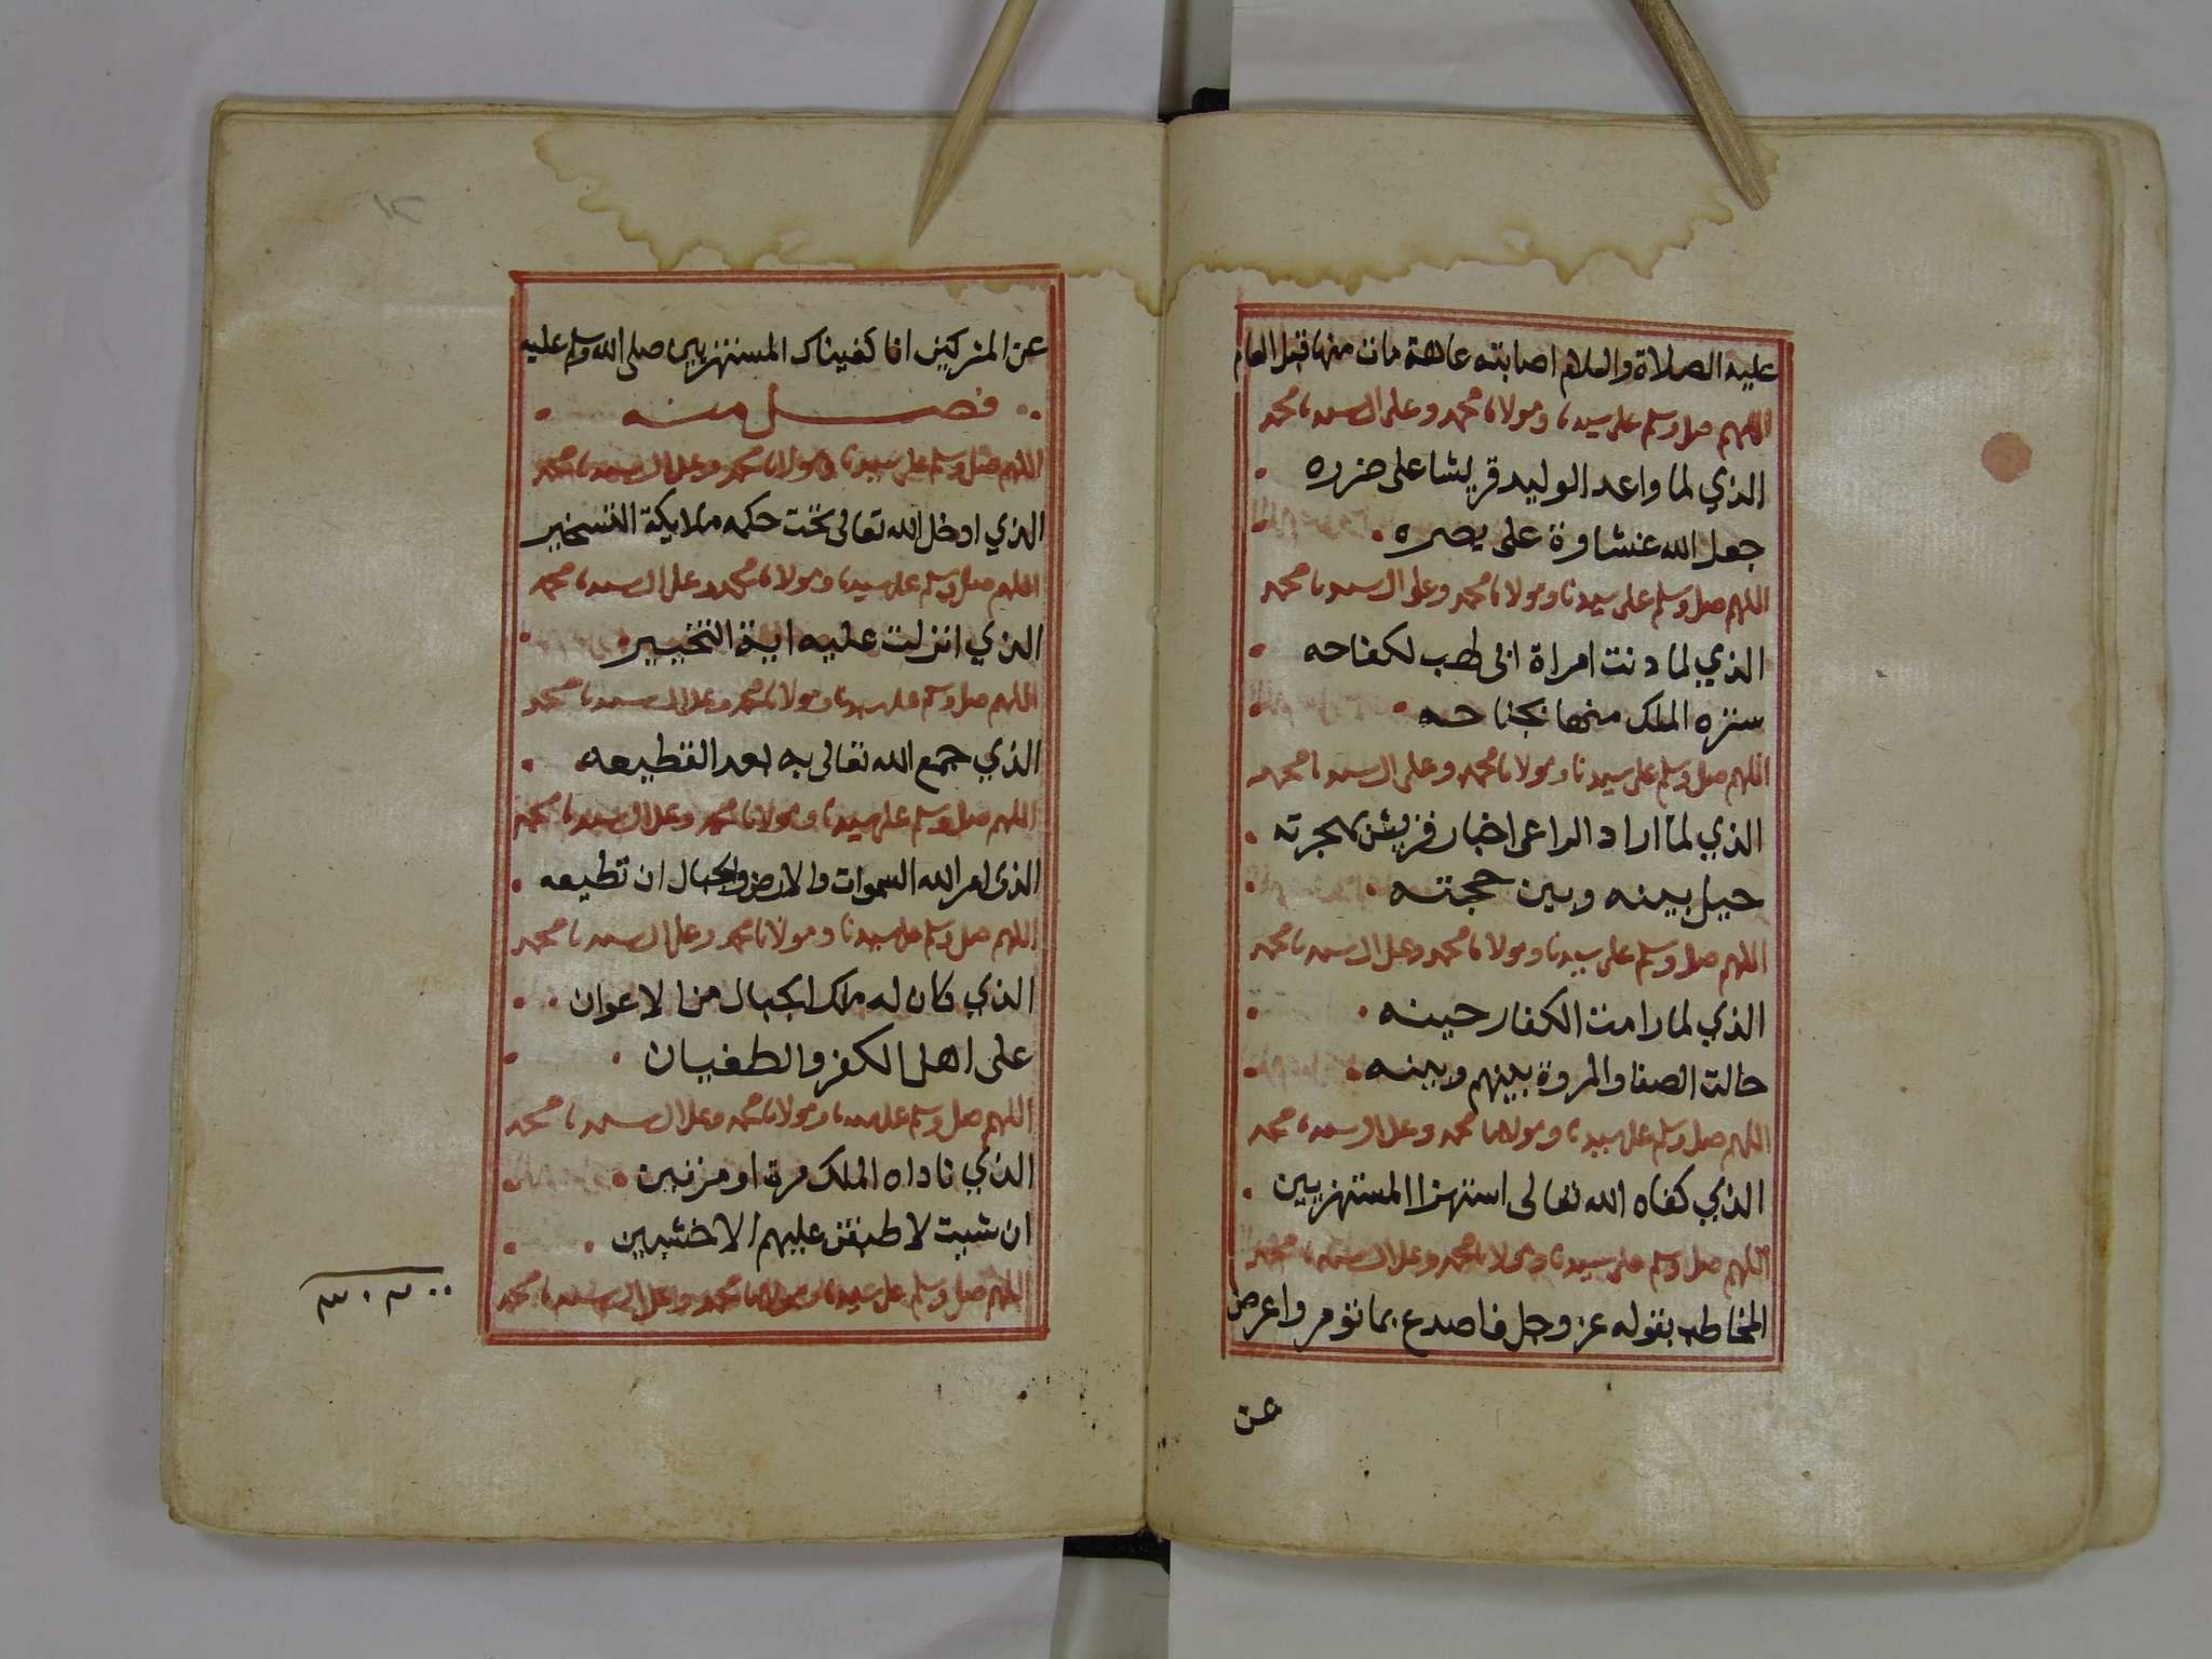 عليه الصلاة والسلام اصابته عاهة مات منها قبل العام
اللهم صل وسلم على سيدنا ومولانا محمد وعلى ال سيدنا محمد
الذي لما واعد الوليد قريشا على ضرره
جعل الله غشاوة على بصره
اللهم صل وسلم على سيدنا ومولانا محمد وعلى ال سيدنا محمد
الذي لما دنت امراة ابى لهب لكفاحه
ستره الملك منها بجناحه
اللهم صل وسلم على سيدنا ومولانا محمد وعلى ال سيدنا محمد
الذي لما اراد الراعى اخبار قريش بهجرته
حيل بينه وبين حجته
اللهم صل وسلم على سيدنا ومولانا محمد وعلى ال سيدنا محمد
الذي لما رامت الكفار حينه
حالت الصفا والمروة بينهم وبينه
اللهم صل وسلم على سيدنا ومولانا محمد وعلى ال سيدنا محمد
الذي كفاه الله تعالى استهزا المستهزيين
اللهم صل وسلم على سيدنا ومولانا محمد وعلى ال سيدنا محمد
المخاطب بقوله عز وجل فاصدع بما تؤمر واعرض
عن
عن المشركين انا كفيناك المستهزيين صلى الله وسلم عليه
فصل منه
اللهم صل وسلم على سيدنا ومولانا محمد وعلى ال سيدنا محمد
الذي ادخل الله تعالى تحت حكمه ملايكة التسخير
اللهم صل وسلم على سيدنا ومولانا محمد وعلى ال سيدنا محمد
الذي انزلت عليه اية التخيير
اللهم صل وسلم على سيدنا ومولانا محمد وعلى ال سيدنا محمد
الذي جمع الله تعالى به بعد القطيعه
اللهم صل وسلم على سيدنا ومولانا محمد وعلى ال سيدنا محمد
الذى امر الله السموات والارض والجبال ان تطيعه
اللهم صل وسلم على سيدنا ومولانا محمد وعلى ال سيدنا محمد
الذي كان له ملك الجبال من الاعوان
على اهل الكفر والطغيان
اللهم صل وسلم على سيدنا ومولانا محمد وعلى ال سيدنا محمد
الذي ناداه الملك مرة او مرتين
ان شيت لاطبقن عليهم الاخشبين
اللهم صل وسلم على سيدنا ومولانا محمد وعلى ال سيدنا محمد